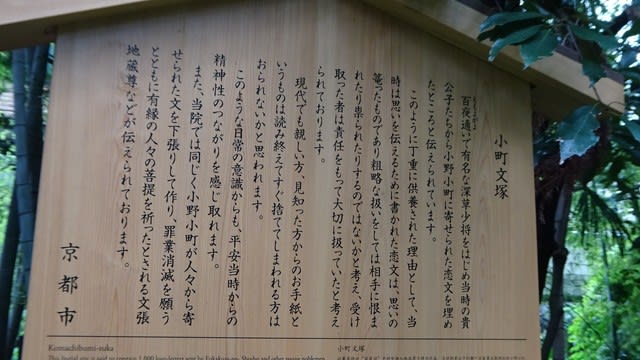 小町文塚
百夜通いで有名な深草少将をはじめ当時の貴
公子たちから小野小町に寄せられた恋文を埋め
たところと伝えられています。
このように丁重に供養された理由として、当
時は思いを伝えるために書かれた恋文は、思いの
篭ったものであり粗略な扱いをしては相手に恨ま
れたり祟られたりするのではないかと考え、受け
取った者は責任をもって大切に扱っていたと考え
られております。
現代でも親しい方、見知った方からのお手紙と
いうものは読み終えてすぐ捨ててしまわれる方は
おられないかと思われます。
このような日常の意識からも、平安当時からの
精神性のつながりを感じ取れます。
また、当院では同じく小野小町が人々から寄
せられた文を下張りして作り、罪業消滅を願う
とともに有縁の人々の菩提を祈ったとされる文張
地蔵尊などが伝えられております。
京都市
Komachibumi-zuka
This burial site is said to contain 1,000 love letters sent by Fukakusa-no-Shosho and other young noblemen
小町文塚